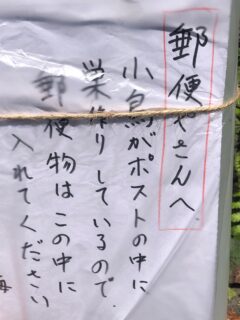 郵便やさんへ
小鳥がポストの中に
巣作りしているので、
郵便物はこの中に
入れてください